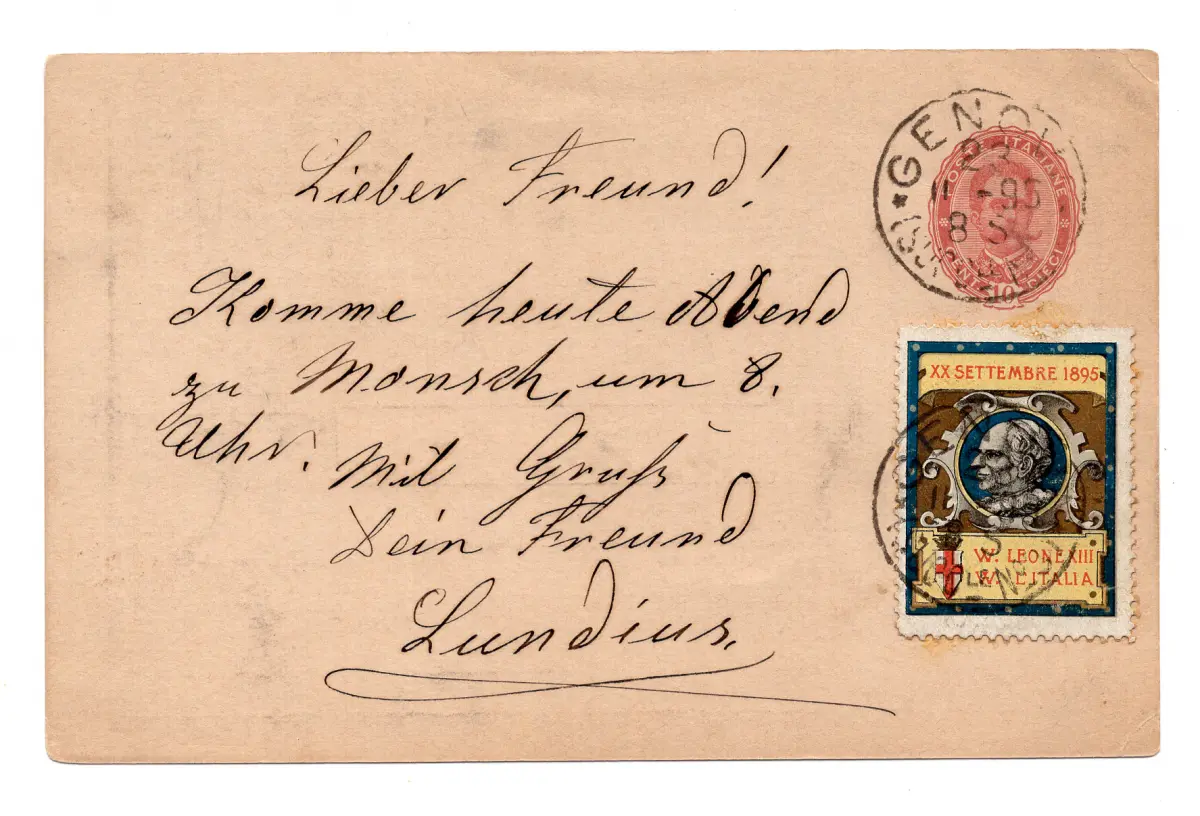 Lieber Freund!
Komme heute Abend
zu Monsch, um 8.
Uhr. Mit Gruß
Dein Freund
Lundius.
GENOVA
23
11 -95
8 S
POSTE ITALIANE
CENT. 10 DIECI
XX SETTEMBRE 1895
W. LEONE XIII
W. L'ITALIA